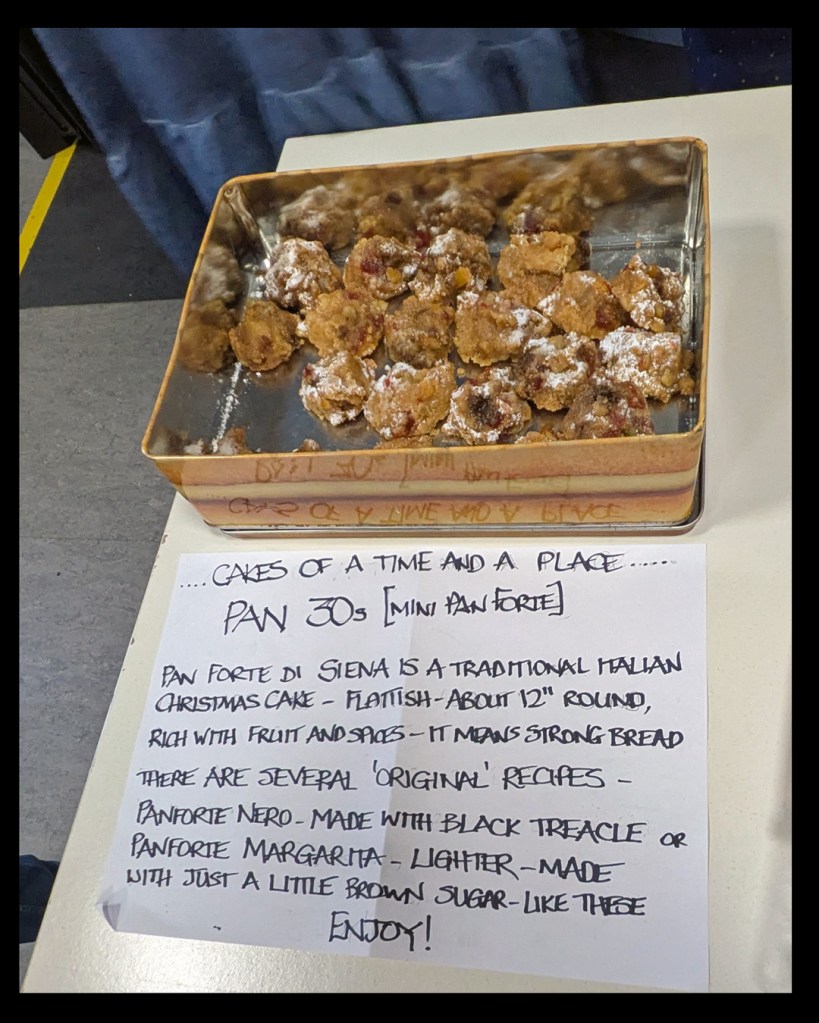 ....CAKES OF A TIME AND A PLACE.....
PAN 30s [MINI PAN FORTE]
PAN FORTE DI SIENA IS A TRADITIONAL ITALIAN
CHRISTMAS CAKE - FLATTISH - ABOUT 12" ROUND,
RICH WITH FRUIT AND SPICES - IT MEANS STRONG BREAD
THERE ARE SEVERAL 'ORIGINAL' RECIPES -
PANFORTE NERO - MADE WITH BLACK TREACLE OR
PANFORTE MARGARITA - LIGHTER - MADE
WITH JUST A LITTLE BROWN SUGAR - LIKE THESE
ENJOY!